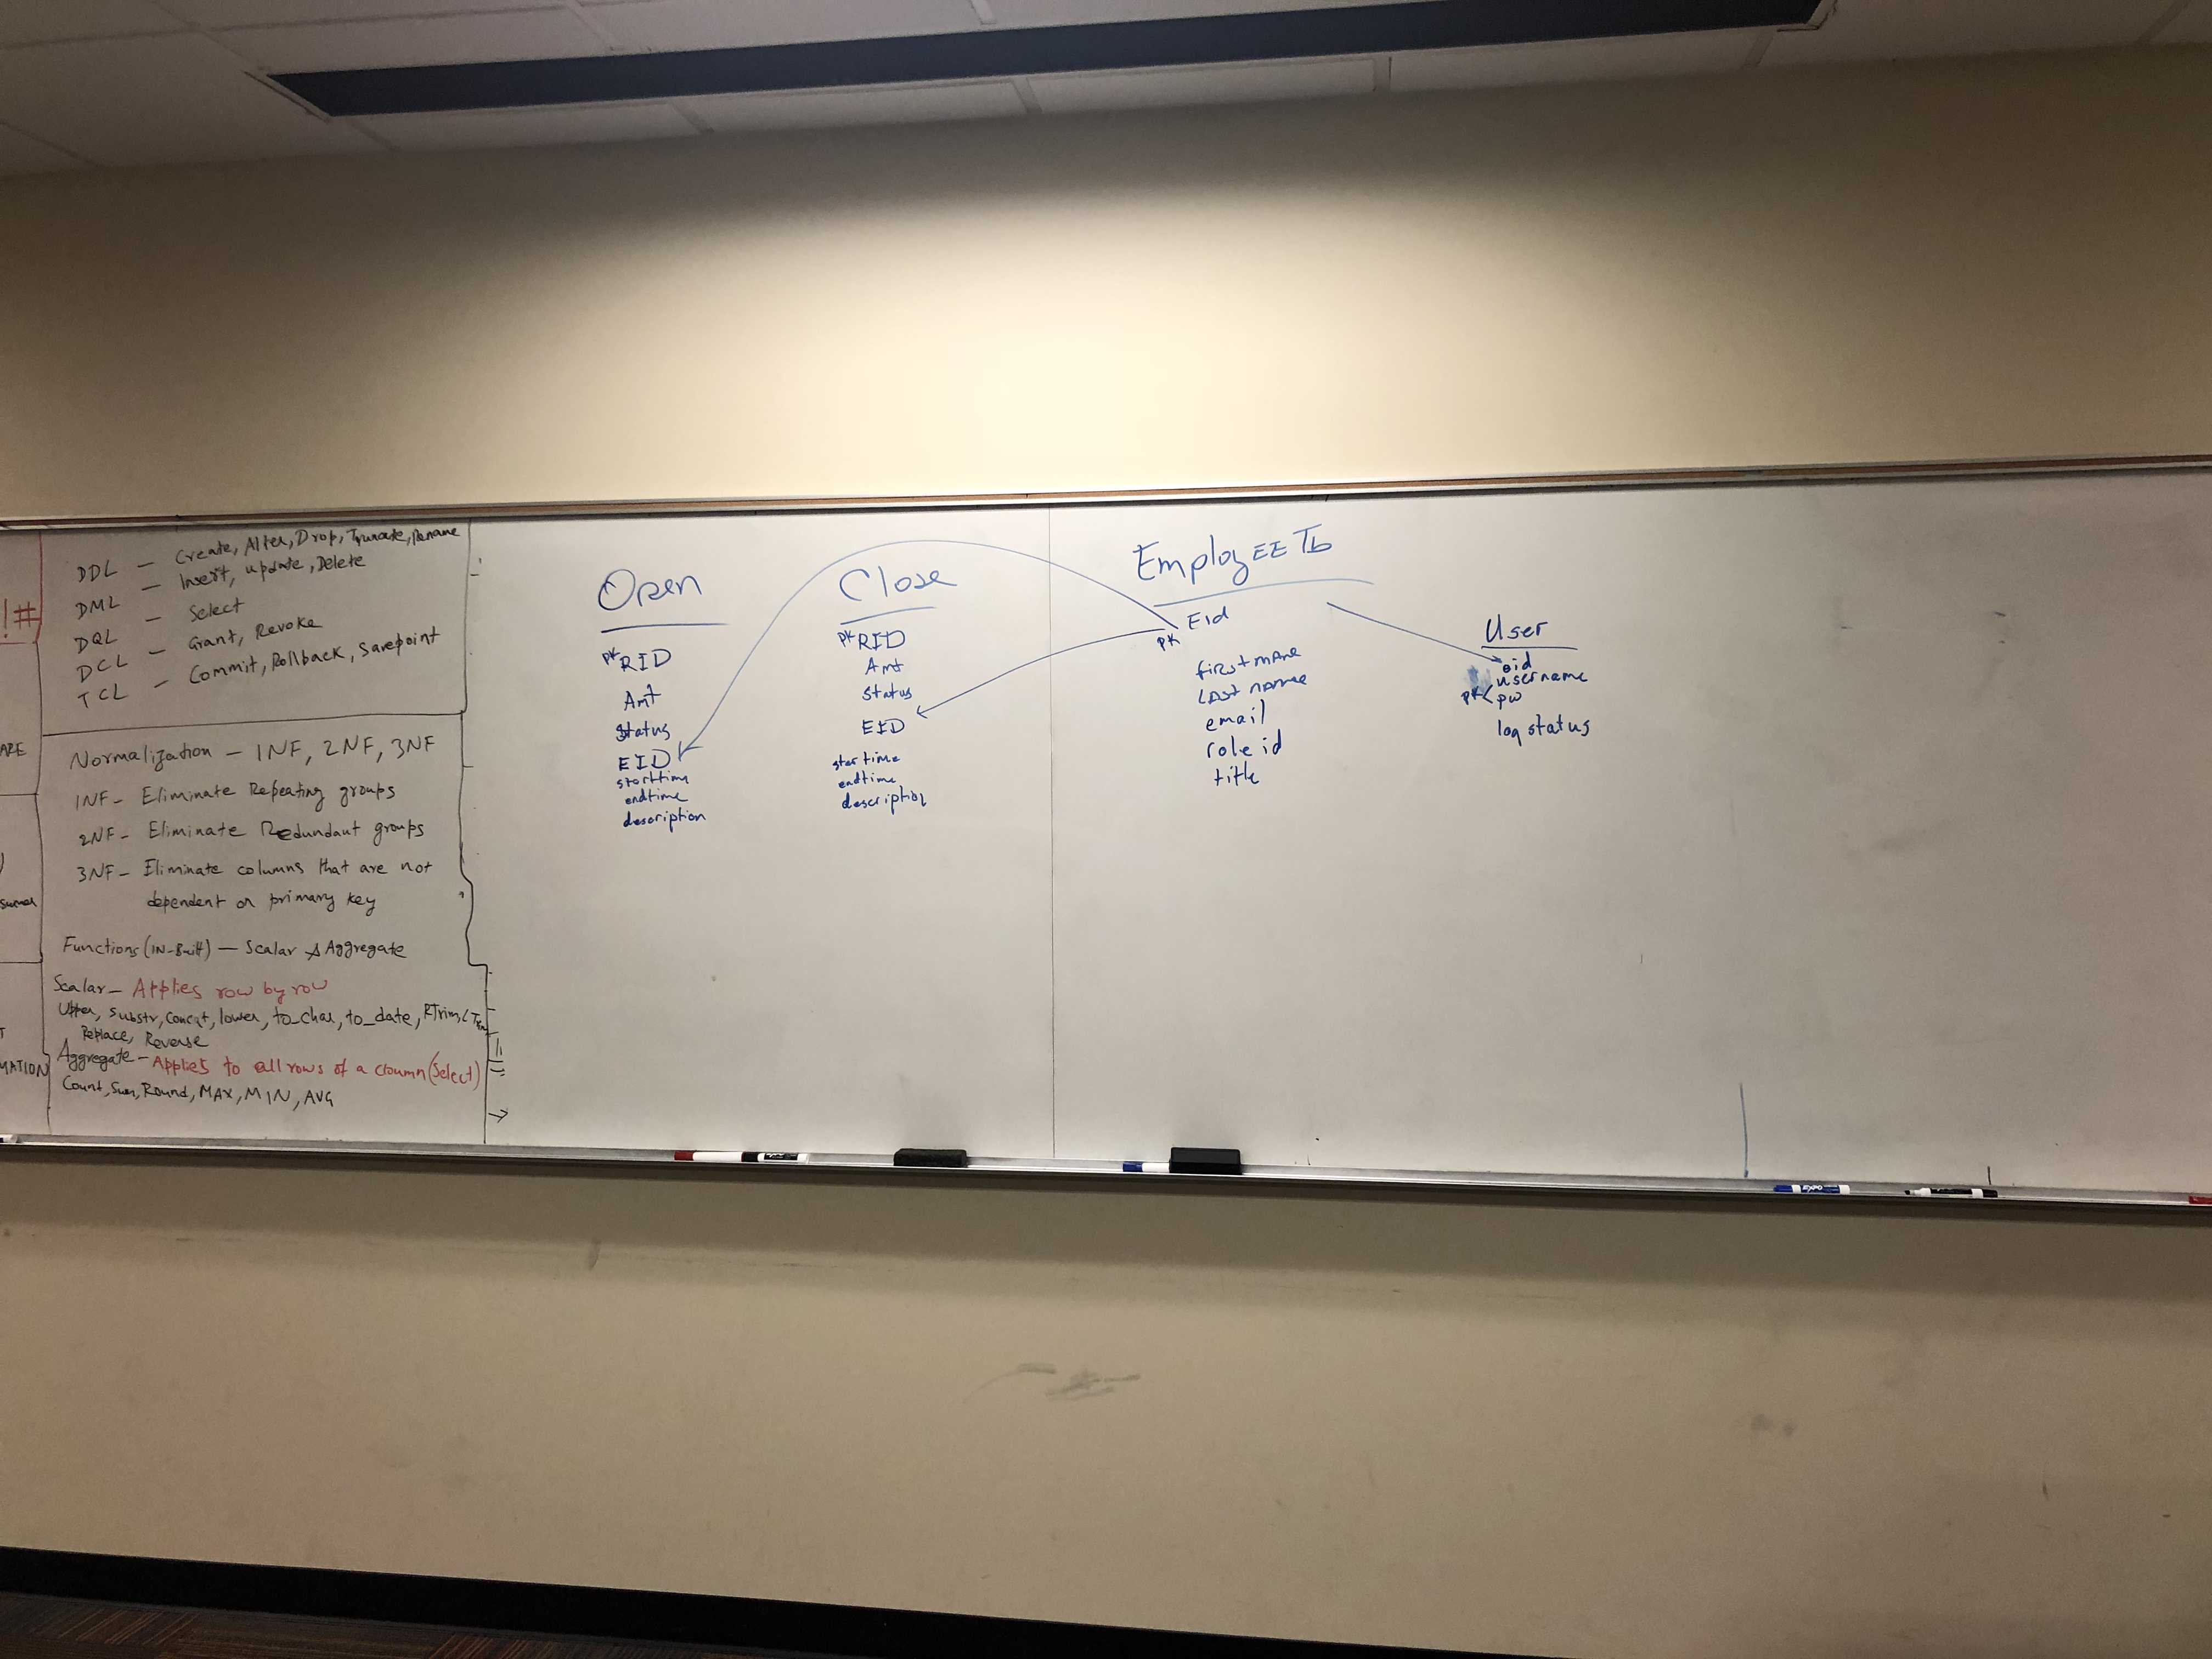 !#
ARE
sumer
T
MATION
DDL — Create, Alter, Drop, Truncate, Rename
DML — Insert, update, Delete
DQL — Select
DCL — Grant, Revoke
TCL — Commit, Rollback, Savepoint
Normalization — 1NF, 2NF, 3NF
1NF- Eliminate Repeating groups
2NF- Eliminate Redundant groups
3NF- Eliminate columns that are not
dependent on primary key
Functions (IN-Built) — Scalar & Aggregate
Scalar — Applies row by row
Upper, Substr, Concat, lower, to_char, to_date, RTrim, LTrim
Replace, Reverse
Aggregate - Applies to all rows of a cloumn (Select)
Count, Sum, Round, MAX, MIN, AVG
Open
PK RID
Amt
Status
EID
starttime
endtime
description
Close
PK RID
Amt
Status
EID
startime
endtime
description
EmployEE Tb
PK Eid
first name
LAst name
email
role id
title
User
eid
username
PK < pw
log status